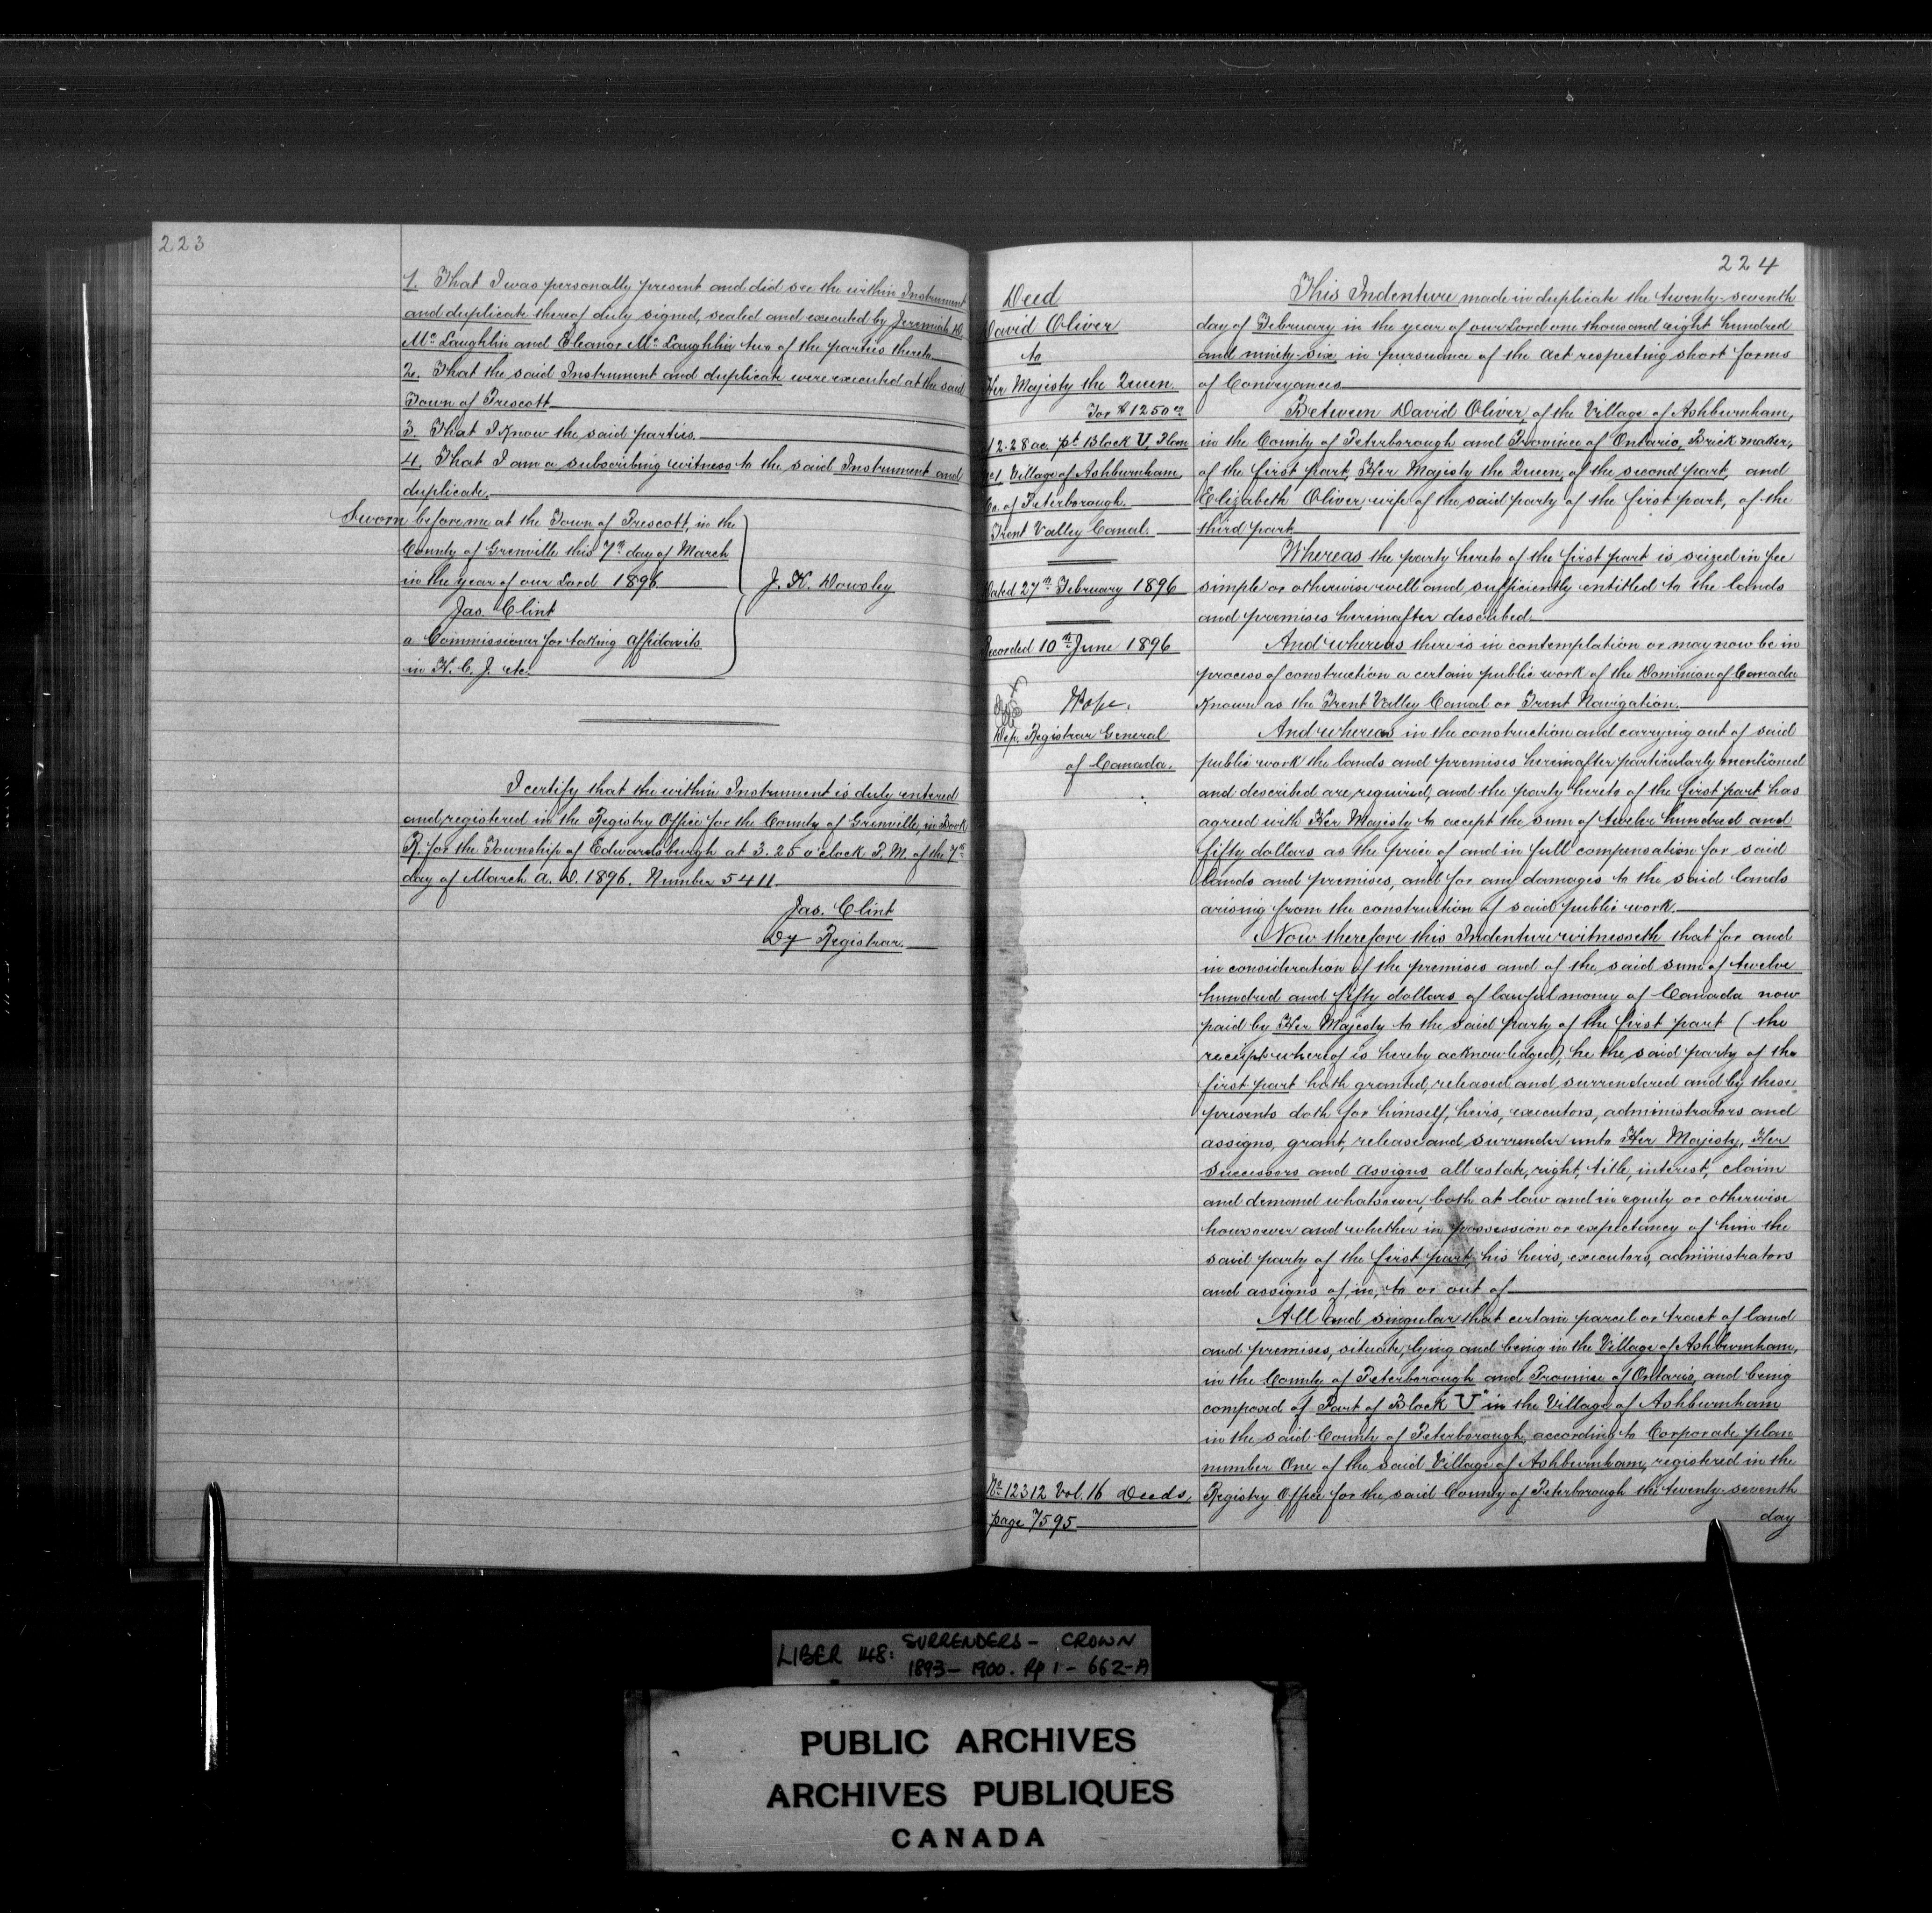 223
1. That I was personally present and did see the within Instrument
and duplicate thereof duly signed, sealed and executed by Jeremiah D.
Mc Laughlin and Eleanor Mc Laughlin two of the parties thereto
2. That the said Instrument and duplicate were executed at the said
Town of Prescott
3. That I know the said parties.
4. That I am a subscribing witness to the said Instrument and
duplicate.
Sworn before me at the Town of Prescott, in the
County of Grenville this 7th day of March
in the year of our Lord 1896
J. K. Dowsley
Jas. Clint
a Commissioner for taking affidavits
in H. C. J. etc.
I certify that the within Instrument is duly entered
and registered in the Registry Office for the County of Grenville, in Book
R. for the Township of Edwardsburgh at 3.25 o'clock P.M. of the 7th
day of March A. D. 1896. Number 5411.
Jas. Clint
Dy Registrar.
224
Deed
David Oliver
to
Her Majesty the Queen.
For $1250.00
12.28 ac. pt Block U, Plan
No 1, Village of Ashburnham,
Co. of Peterborough.
Trent Valley Canal.
Dated 27th February 1896
Recorded 10th June 1896
Pope.
Dep. Registrar General
of Canada.
No 12312 Vol. 16 Deeds,
page 7595
This Indenture made in duplicate the twenty-seventh
day of February in the year of our Lord one thousand eight hundred
and ninety-six in pursuance of the Act respecting short forms
of Conveyances
Between David Oliver, of the Village of Ashburnham,
in the County of Peterborough and Province of Ontario, Brick maker,
of the first part, Her Majesty the Queen, of the second part, and
Elizabeth Oliver, wife of the said party of the first part, of the
third part
Whereas the party hereto of the first part is seized in fee
simple or otherwise well and sufficiently entitled to the lands
and premises hereinafter described.
And whereas there is in contemplation or may now be in
process of construction a certain public work of the Dominion of Canada
known as the Trent Valley Canal or Trent Navigation.
And whereas in the construction and carrying out of said
public work the lands and premises hereinafter particularly mentioned
and described are required, and the party hereto of the first part has
agreed with Her Majesty to accept the sum of twelve hundred and
fifty dollars as the price of and in full compensation for said
lands and premises, and for any damages to the said lands
arising from the construction of said public work.
Now therefore this Indenture witnesseth that for and
in consideration of the premises and of the said sum of twelve
hundred and fifty dollars of lawful money of Canada now
paid by Her Majesty to the said party of the first part (the
receipt whereof is hereby acknowledged), he the said party of the
first part hath granted, released and surrendered and by these
presents doth for himself, heirs, executors, administrators and
assigns, grant, release and surrender unto Her Majesty, Her
Successors and Assigns all estate, right, title, interest, claim
and demand whatsoever, both at law and in equity or otherwise
howsoever and whether in possession or expectancy of him the
said party of the first part, his heirs, executors, administrators
and assigns of, in, to or out of
All and singular that certain parcel or tract of land
and premises, situate, lying and being in the Village of Ashburnham,
in the County of Peterborough and Province of Ontario, and being
composed of Part of Block "U" in the Village of Ashburnham
in the said County of Peterborough, according to Corporate plan
number One of the said Village of Ashburnham, registered in the
Registry Office for the said County of Peterborough the twenty-seventh
day
LIBER 148: SURRENDERS - CROWN
1893 - 1900. Pp 1 - 662-A
PUBLIC ARCHIVES
ARCHIVES PUBLIQUES
CANADA